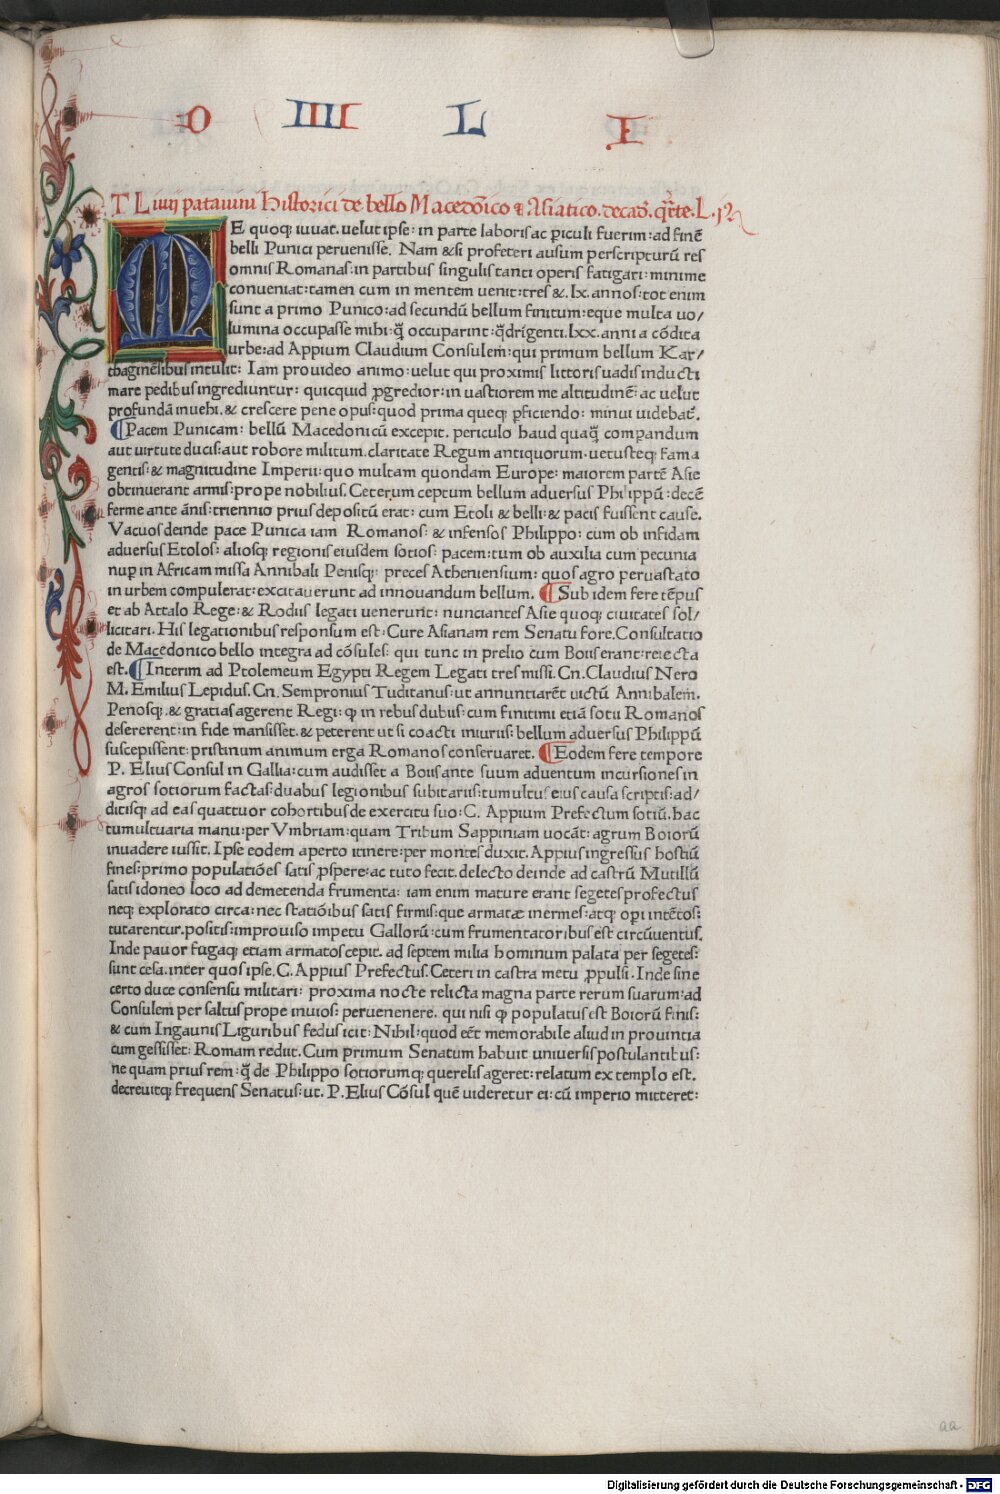 O IIII L I
T. Liuii pataviui Historici de bello Macedõico & Asiatico. decad. q̃rte. L. j
ME quoq; iuuat. uelut ipse: in parte laboris ac piculi fuerim: ad finẽ
belli Punici peruenisse. Nam &si profeteri ausum perscripturũ res
omnis Romanas: in partibus singulis tanti operis fatigari: minime
conueniat: tamen cum in mentem uenit: tres &. lx. annos: tot enim
sunt a primo Punico: ad secundũ bellum finitum: eque multa uo/
lumina occupasse mihi: q̃ occuparint: q̃drigenti. lxx. anni a cõdita
urbe: ad Appium Claudium Consulem: qui primum bellum Kar/
thaginẽsibus intulit: Iam prouideo animo: uelut qui proximis littoris uadis inducti
mare pedibus ingrediuntur: quicquid ꝓgredior: in uastiorem me altitudinẽ: ac uelut
profundã inuehi. & crescere pene opus: quod prima queq; ꝑficiendo: minui uidebat̃.
¶Pacem Punicam: bellũ Macedonicũ excepit. periculo haud quaq̃ comparandum
aut uirtute ducis: aut robore militum. claritate Regum antiquorum. uetusteq; fama
gentis: & magnitudine Imperii: quo multam quondam Europe: maiorem partẽ Asie
obtinuerant armis: prope nobilius. Ceterum ceptum bellum aduersus Philippũ: decẽ
ferme ante ãnis: triennio prius depositũ erat: cum Etoli & belli: & pacis fuissent cause.
Vacuos deinde pace Punica iam Romanos: & infensos Philippo: cum ob infidam
aduersus Etolos: aliosq; regionis eiusdem sotios: pacem: tum ob auxilia cum pecunia
nuꝑ in Africam missa Annibali Penisq;: preces Atheniensium: quos agro peruastato
in urbem compulerat: excitauerunt ad innouandum bellum. ¶Sub idem fere tẽpus
et ab Attalo Rege: & Rodiis legati uenerunt: nunciantes Asie quoq; ciuitates sol/
licitari. His legationibus responsum est: Cure Asianam rem Senatu fore. Consultatio
de Macedonico bello integra ad cõsules: qui tunc in prelio cum Boiis erant: reiecta
est. ¶Interim ad Ptolemeum Egypti Regem Legati tres missi. Cn. Claudius Nero
M. Emilius Lepidus. Cn. Sempronius Tuditanus: ut annuntiarẽt uictũ Annibalem.
Penosq;. & gratias agerent Regi: ꝙ in rebus dubiis: cum finitimi etiã sotii Romanos
desererent: in fide mansisset. & peterent ut si coacti iniuriis: bellum aduersus Philippũ
suscepissent: pristinum animum erga Romanos conseruaret. ¶Eodem fere tempore
P. Elius Consul in Gallia: cum audisset a Boiis ante suum aduentum incursiones in
agros sotiorum factas: duabus legionibus subitariis: tumultus eius causa scriptis: ad/
ditisq; ad eas quattuor cohortibus de exercitu suo: C. Appium Prefectum sotiũ. hac
tumultuaria manu: per Vmbriam: quam Tribum Sappiniam uocãt: agrum Boiorũ
inuadere iussit. Ipse eodem aperto itinere: per montes duxit. Appius ingressus hostiũ
fines: primo populatiões satis ꝓspere: ac tuto fecit. delecto deinde ad castrũ Mutillũ
satis idoneo loco ad demetenda frumenta: iam enim mature erant segetes profectus
neq; explorato circa: nec statiõibus satis firmis: que armatæ inermes: atq; opi intẽtos:
tutarentur. positis: improuiso impetu Gallorũ: cum frumentatoribus est circũuentus.
Inde pauor fugaq; etiam armatos cepit. ad septem milia hominum palata per segetes:
sunt cesa. inter quos ipse. C. Appius Prefectus. Ceteri in castra metu ꝓpulsi. Inde sine
certo duce consensu militari: proxima nocte relicta magna parte rerum suarum: ad
Consulem per saltus prope inuios: peruenenere. qui nisi ꝙ populatus est Boiorũ finis:
& cum Ingaunis Liguribus fedus icit: Nihil: quod eẽt memorabile aliud in prouintia
cum gessisset: Romam rediit. Cum primum Senatum habuit uniuersis postulantibus:
ne quam prius rem: q̃ de Philippo sotiorumq; querelis ageret: relatum extemplo est.
decreuitq; frequens Senatus: ut. P. Elius Cõsul quẽ uideretur ei: cũ imperio mitteret:
aa
Digitalisierung gefördert durch die Deutsche Forschungsgemeinschaft - DFG